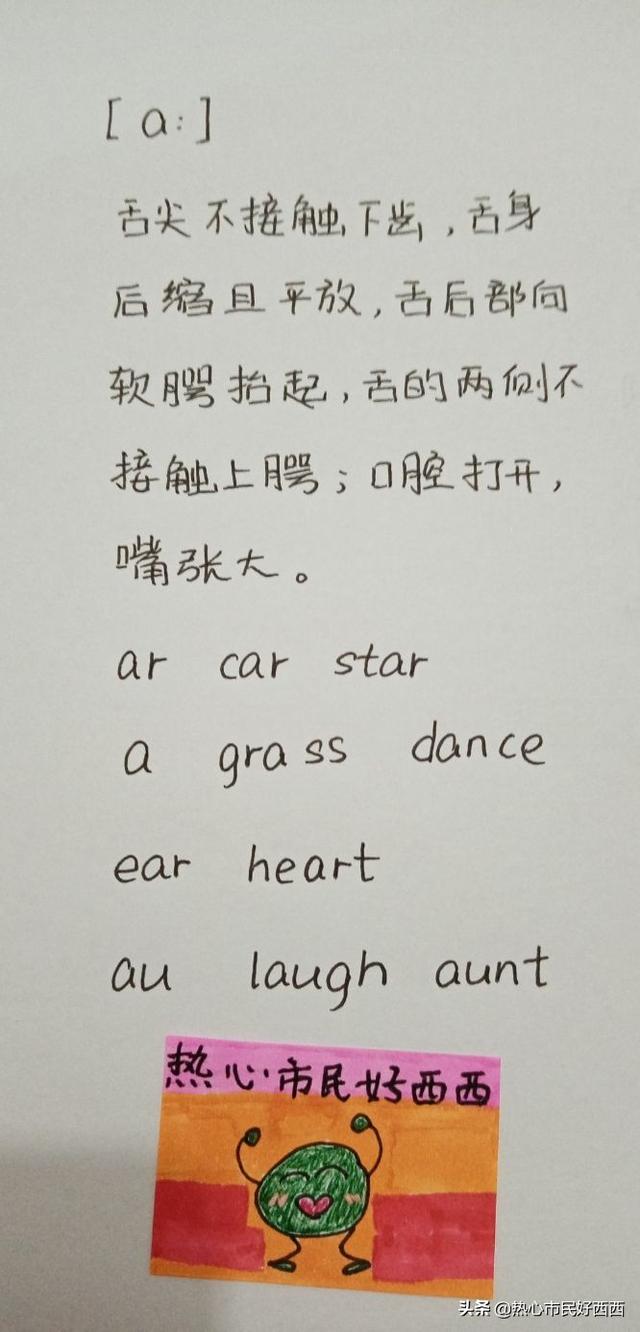 [ ɑ: ]
舌尖不接触下齿，舌身
后缩且平放，舌后部向
软腭抬起，舌的两侧不
接触上腭；口腔打开，
嘴张大。
ar car star
a grass dance
ear heart
au laugh aunt
热心市民好西西
头条 @热心市民好西西